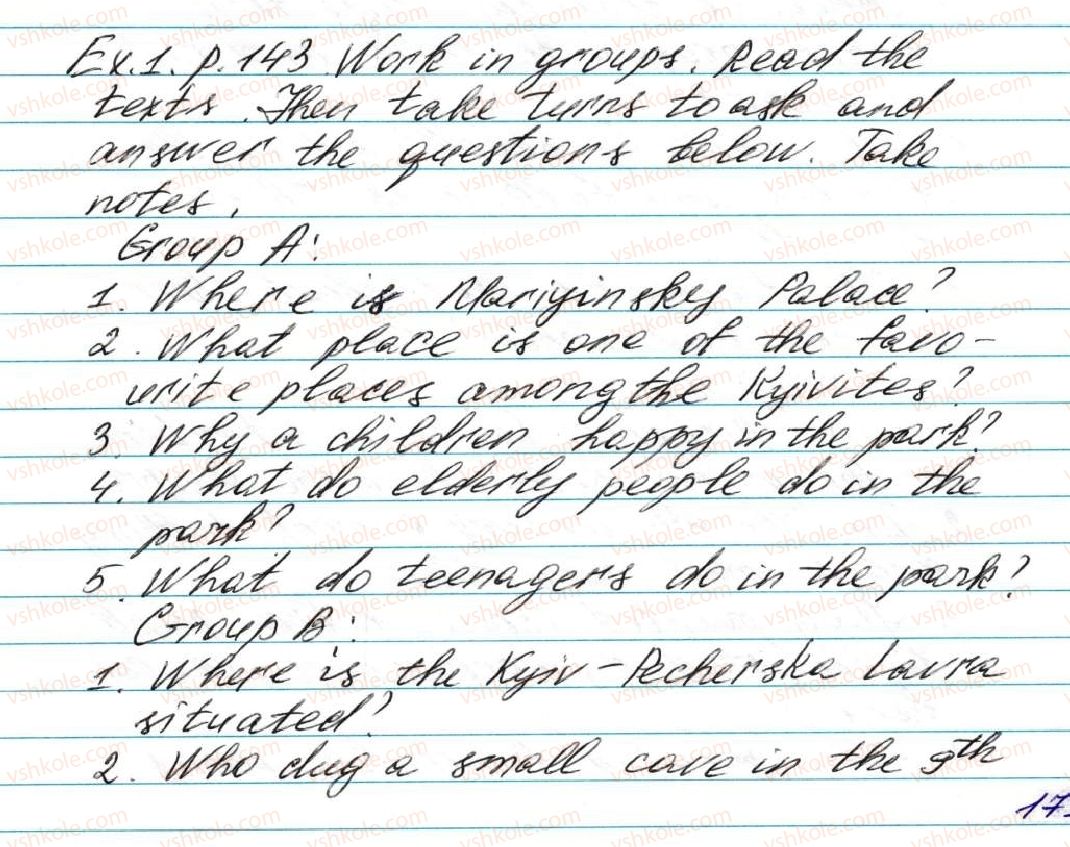 Ex.1. p.143 Work in groups. Read the
texts. Then take turns to ask and
answer the questions below. Take
notes.
Group A:
1. Where is Mariyinsky Palace?
2. What place is one of the favo-
urite places among the Kyivites?
3. Why a children happy in the park?
4. What do elderly people do in the
park?
5. What do teenagers do in the park?
Group B:
1. Where is the Kyiv-Pecherska Lavra
situated?
2. Who dug a small cave in the 9th
vshkole.com